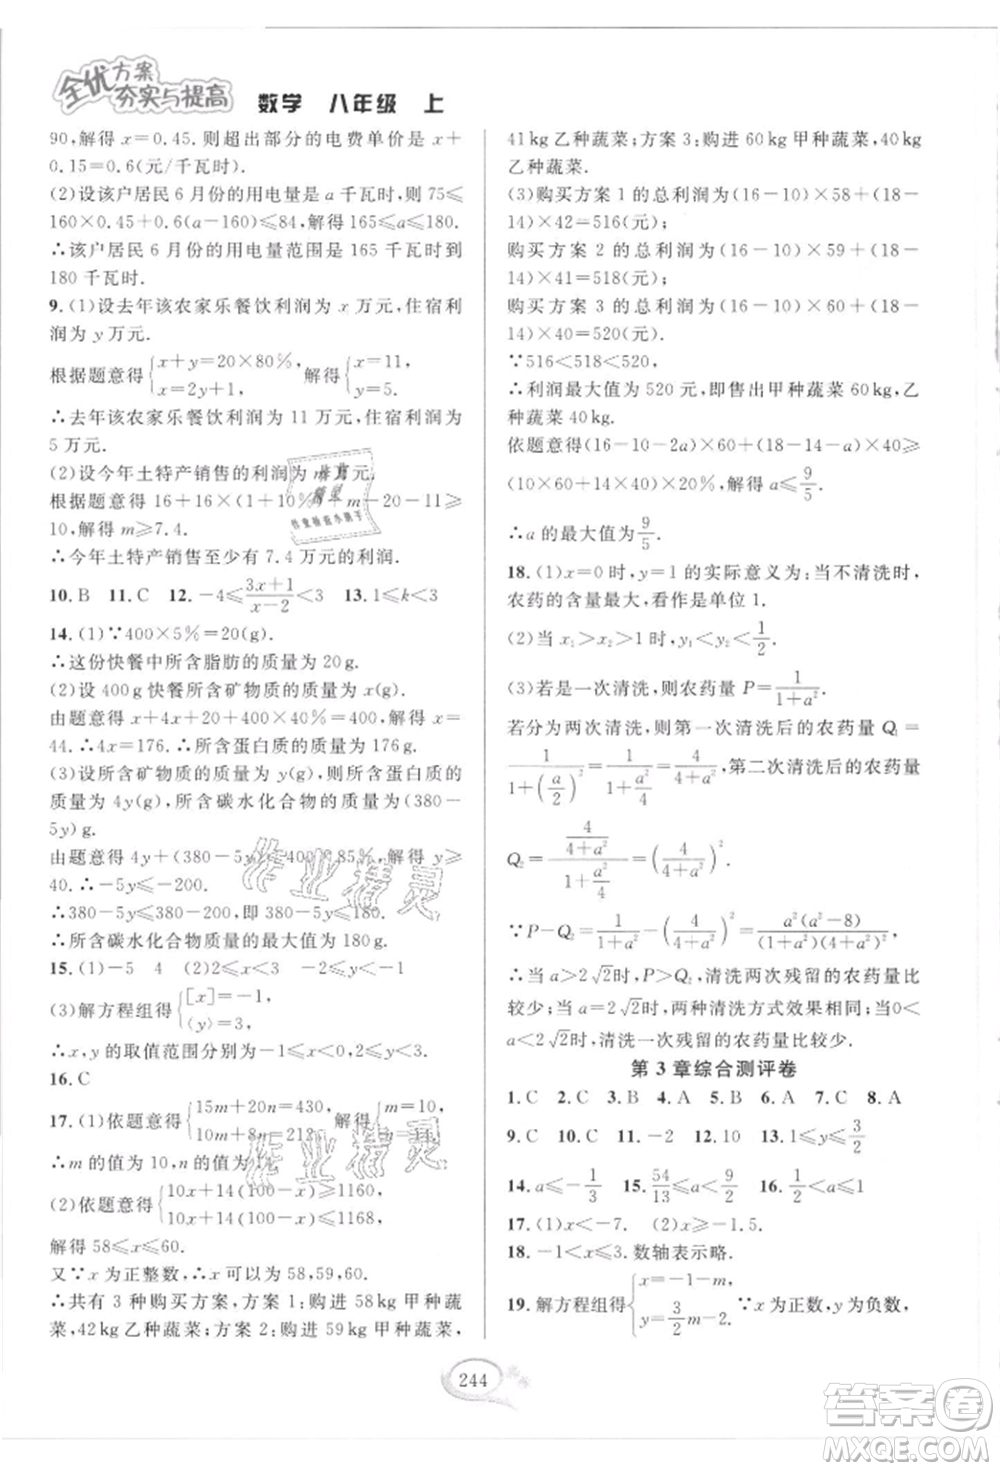 全优方案
夯实与提高 数学 八年级 上
90,解得 x=0.45. 则超出部分的电费单价是 x+
0.15=0.6(元/千瓦时).
(2)设该户居民 6 月份的用电量是 a 千瓦时,则 75≤
160×0.45+0.6(a-160)≤84,解得 165≤a≤180.
∴该户居民 6 月份的用电量范围是 165 千瓦时到
180 千瓦时.
9. (1)设去年该农家乐餐饮利润为 x 万元,住宿利
润为 y 万元.
根据题意得{x+y=20×80%, x=2y+1, 解得{x=11, y=5.
∴去年该农家乐餐饮利润为 11 万元,住宿利润为
5 万元.
(2)设今年土特产销售的利润为 m 万元.
根据题意得 16+16×(1+10%)+m-20-11≥
10,解得 m≥7.4.
∴今年土特产销售至少有 7.4 万元的利润.
10. B 11. C 12. -4≤(3x+1)/(x-2)<3 13. 1≤k<3
14. (1)∵400×5%=20(g).
∴这份快餐中所含脂肪的质量为 20 g.
(2)设 400 g 快餐所含矿物质的质量为 x(g).
由题意得 x+4x+20+400×40%=400,解得 x=
44. ∴4x=176. ∴所含蛋白质的质量为 176 g.
(3)设所含矿物质的质量为 y(g),则所含蛋白质的
质量为 4y(g),所含碳水化合物的质量为(380-
5y) g.
由题意得 4y+(380-5y)≤400×85%,解得 y≥
40. ∴-5y≤-200.
∴380-5y≤380-200,即 380-5y≤180.
∴所含碳水化合物质量的最大值为 180 g.
15. (1)-5 4 (2)2≤x<3 -2≤y<-1
(3)解方程组得{[x]=-1, ⟨y⟩=3,
∴x,y 的取值范围分别为-1≤x<0,2≤y<3.
16. C
17. (1)依题意得{15m+20n=430, 10m+8n=212, 解得{m=10, n=14.
∴m 的值为 10,n 的值为 14.
(2)依题意得{10x+14(100-x)≥1160, 10x+14(100-x)≤1168,
解得 58≤x≤60.
又∵x 为正整数,∴x 可以为 58,59,60.
∴共有 3 种购买方案,方案 1:购进 58 kg 甲种蔬
菜,42 kg 乙种蔬菜;方案 2:购进 59 kg 甲种蔬菜,
41 kg 乙种蔬菜;方案 3:购进 60 kg 甲种蔬菜,40 kg
乙种蔬菜.
(3)购买方案 1 的总利润为(16-10)×58+(18-
14)×42=516(元);
购买方案 2 的总利润为(16-10)×59+(18-
14)×41=518(元);
购买方案 3 的总利润为(16-10)×60+(18-
14)×40=520(元).
∵516<518<520,
∴利润最大值为 520 元,即售出甲种蔬菜 60 kg,乙
种蔬菜 40 kg.
依题意得(16-10-2a)×60+(18-14-a)×40≥
(10×60+14×40)×20%,解得 a≤9/5.
∴a 的最大值为 9/5.
18. (1)x=0 时,y=1 的实际意义为:当不清洗时,
农药的含量最大,看作是单位 1.
(2)当 x₁>x₂>1 时,y₁<y₂<1/2.
(3)若是一次清洗,则农药量 P=1/(1+a²).
若分为两次清洗,则第一次清洗后的农药量 Q₁
=1/(1+(a/2)²)=1/(1+a²/4)=4/(4+a²),第二次清洗后的农药量
Q₂=(4/(4+a²))/(1+(a/2)²)=(4/(4+a²))².
∵P-Q₂=1/(1+a²)-(4/(4+a²))²=a²(a²-8)/((1+a²)(4+a²)²),
∴当 a>2√2时,P>Q₂,清洗两次残留的农药量比
较少;当 a=2√2时,两种清洗方式效果相同;当 0<
a<2√2时,一次残留的农药量比较少.
第 3 章综合测评卷
1. C 2. C 3. B 4. A 5. B 6. A 7. C 8. A
9. C 10. C 11. -2 12. 10 13. 1≤y≤3/2
14. a≤-1/3 15. 54/13≤a≤9/2 16. -2≤a≤1
17. (1)x<-7. (2)x≥-1.5.
18. -1<x≤3. 数轴表示略.
19. 解方程组得{x=-1-m, y=3/2m-2. ∵x 为正数,y 为负数,
244
作业精灵
作业精灵
答案圈
MXQE.COM